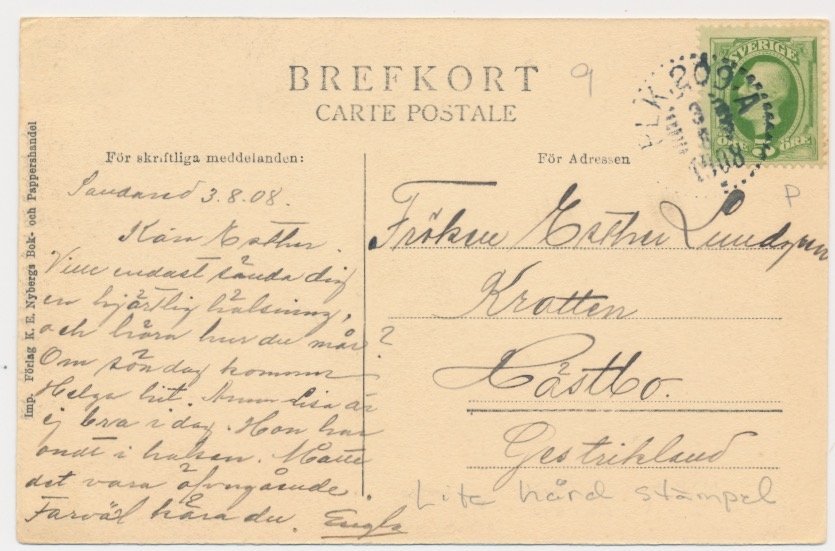 BREFKORT
CARTE POSTALE
9
SVERIGE
5
ÖRE ÖRE
PLK 209 A
3 8
1908
För skriftliga meddelanden:
3.8.08.
Kära Esther.
Vill endast sända dig
en hjärtlig hälsning,
och höra hur du mår?
Om söndag kommer
Helga hit. Anna Lisa är
ej bra i dag. Hon har
ondt i halsen. Måtte
det vara öfvergående.
Farväl kära du. Engla
För Adressen
P
Fröken Esther Lundgren
Kratten
Gästbo.
Gestrikland
Lite hård stämpel
Imp. Förlag K. E. Nybergs Bok- och Pappershandel